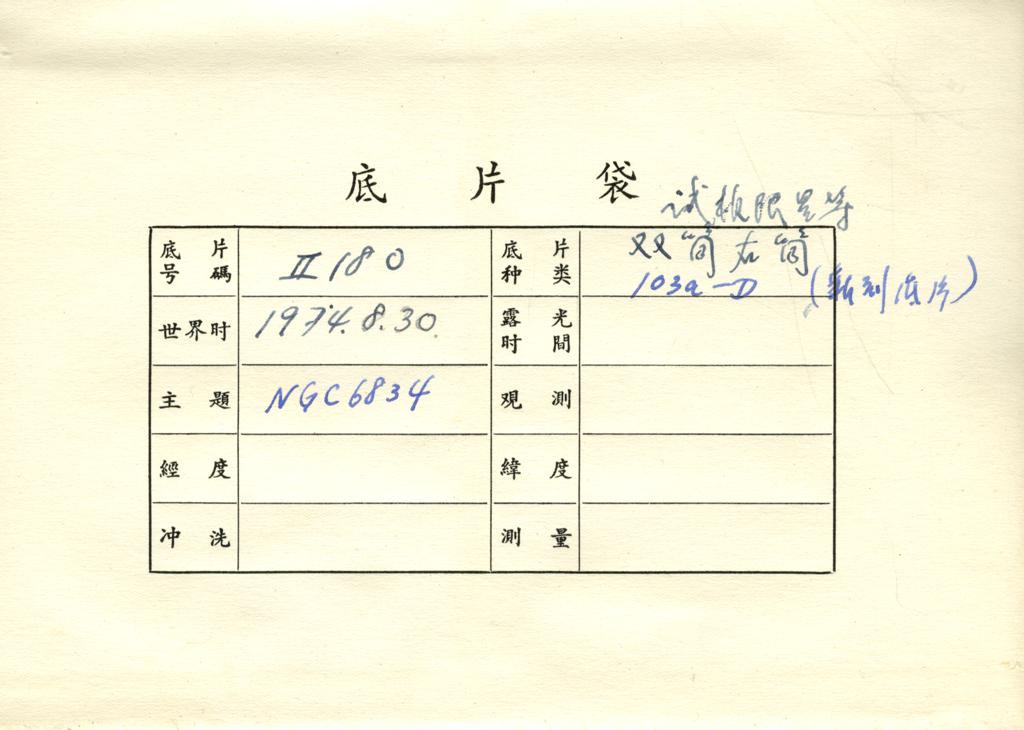 底片袋
试极限星等
底片号碼 II 180 底片种类 双筒右筒
103a-D (新到底片)
世界时 1974.8.30. 露光时間
主題 NGC6834 观測
經度 緯度
冲洗 測量